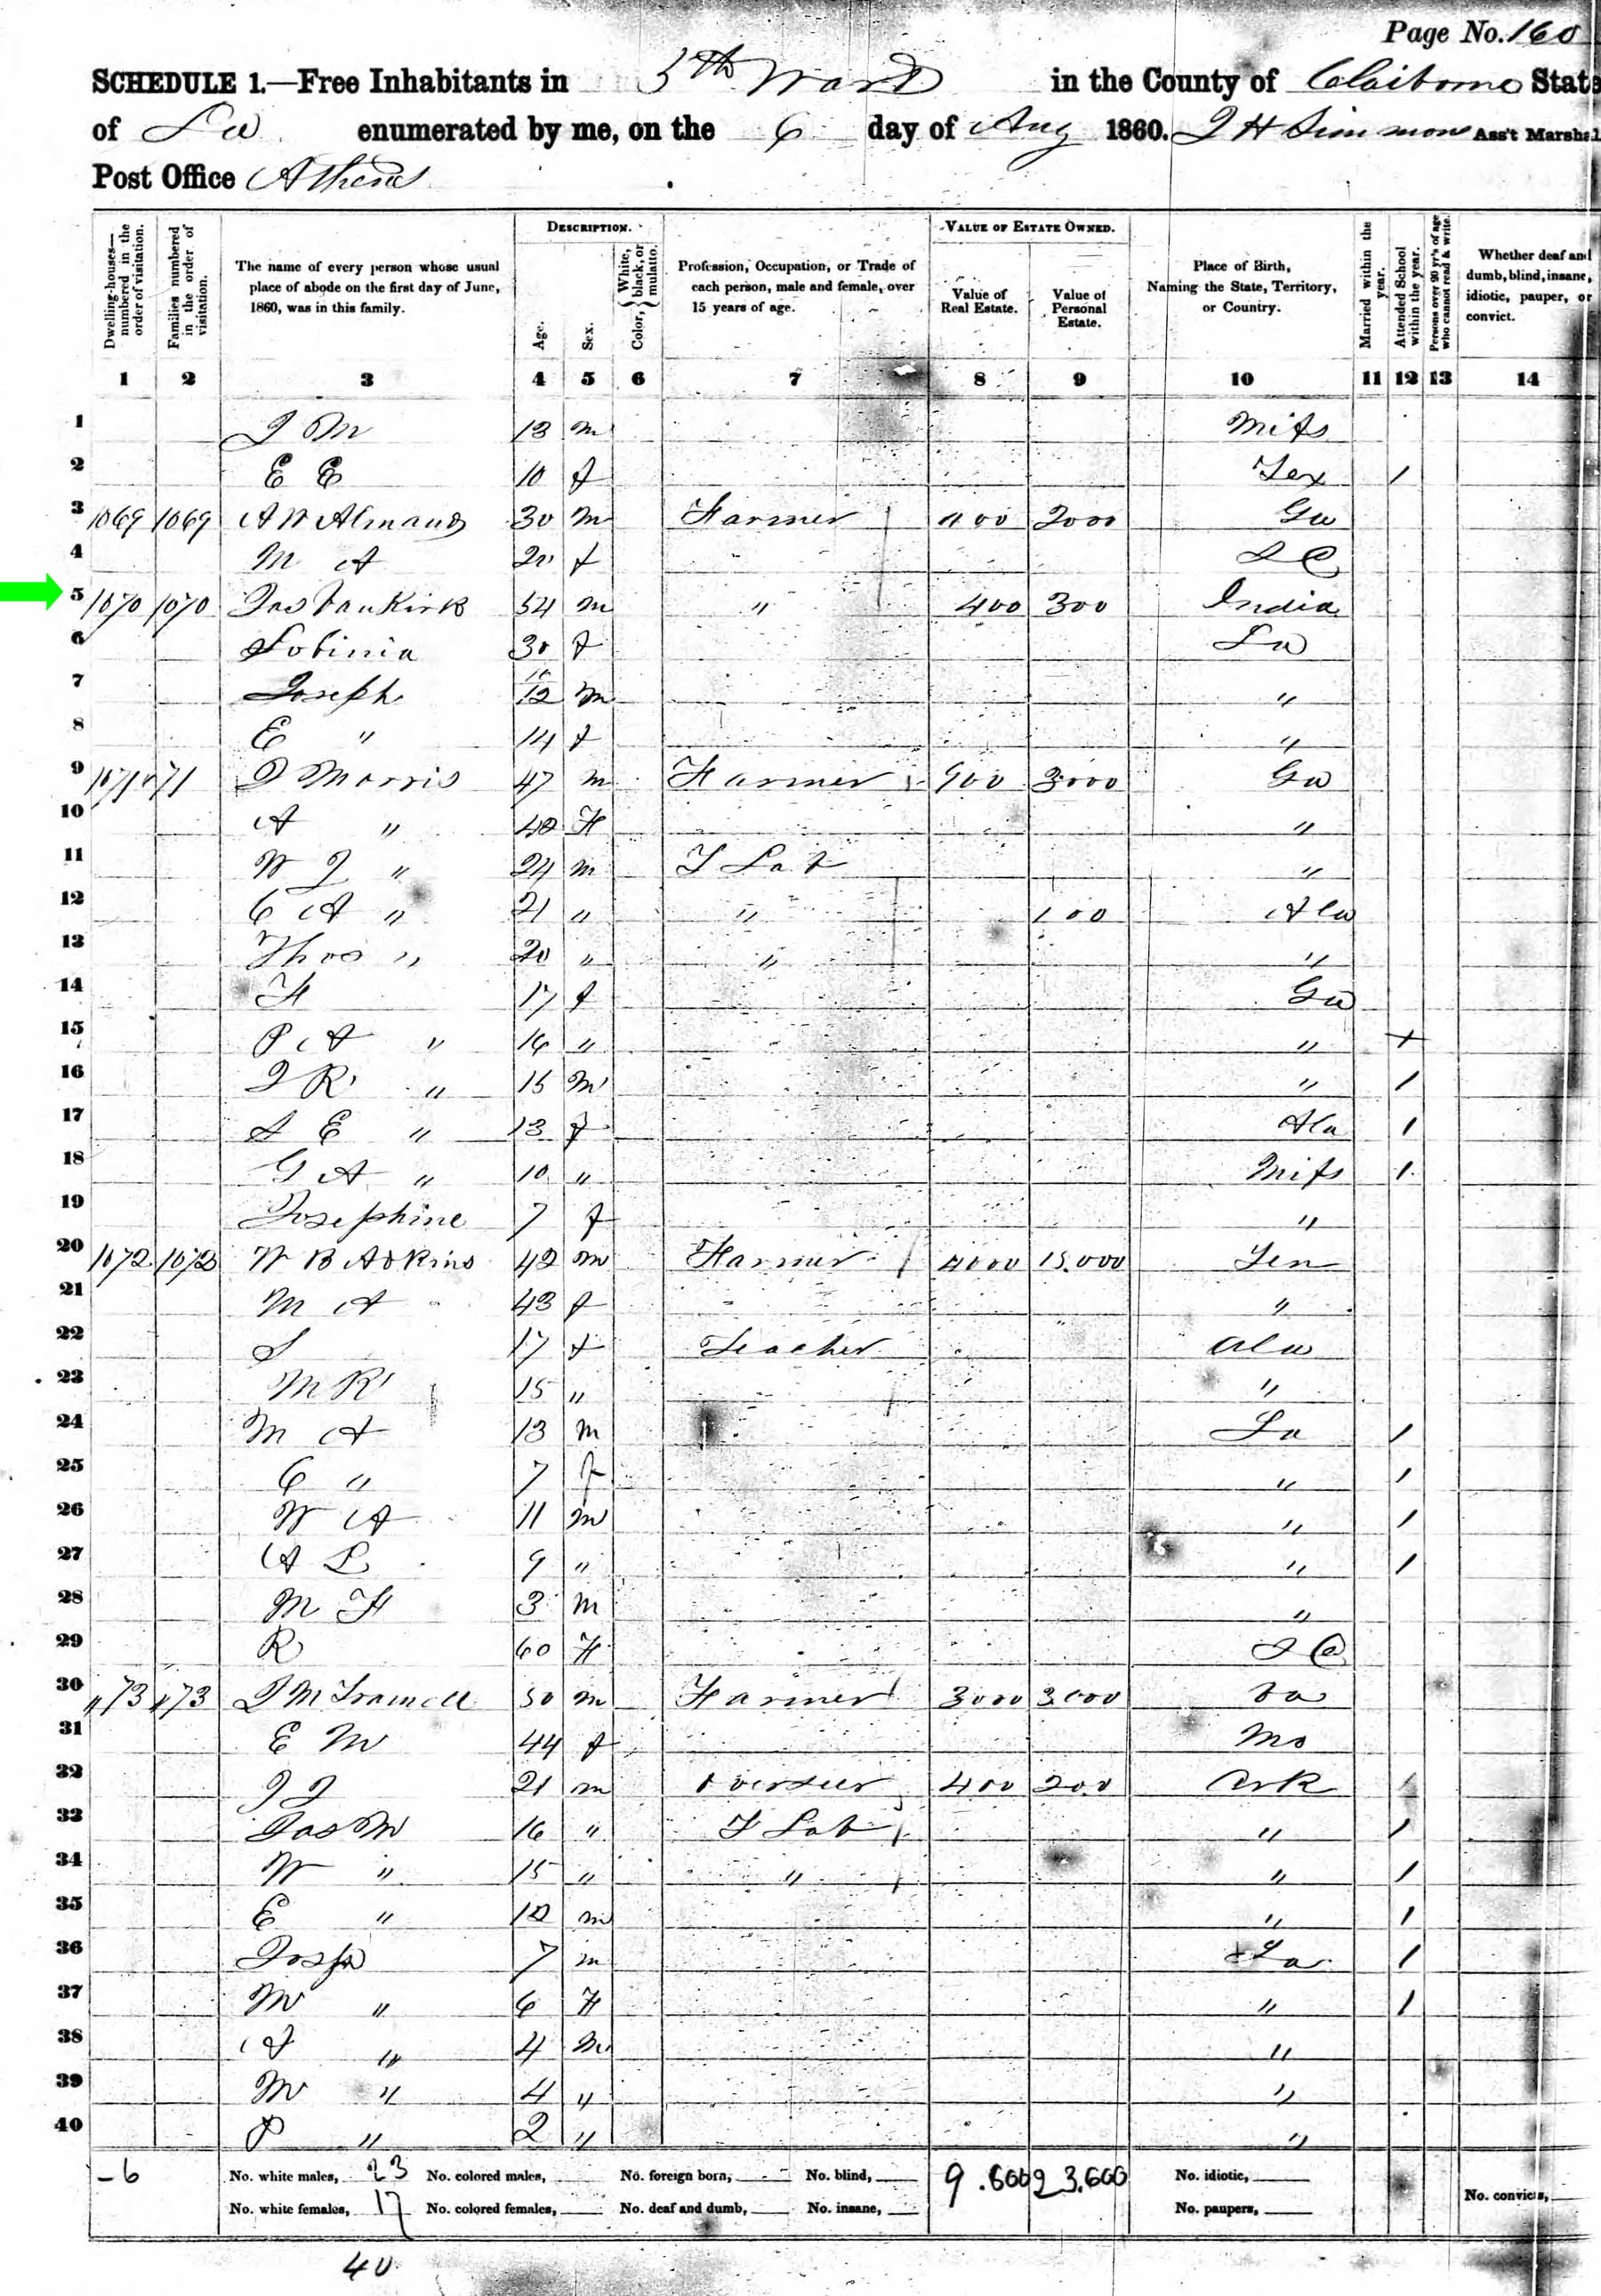 Page No. 160
SCHEDULE 1.—Free Inhabitants in 5th Ward in the County of Claiborne State
of La enumerated by me, on the 6 day of Aug 1860. J H Simmons Ass't Marshal
Post Office Athens
Dwelling-houses— numbered in the order of visitation. Families numbered in the order of visitation. The name of every person whose usual place of abode on the first day of June, 1860, was in this family. DESCRIPTION. Age. Sex. Color, { White, black, or mulatto. Profession, Occupation, or Trade of each person, male and female, over 15 years of age. VALUE OF ESTATE OWNED. Value of Real Estate. Value of Personal Estate. Place of Birth, Naming the State, Territory, or Country. Married within the year. Attended School within the year. Persons over 20 y'rs of age who cannot read & write. Whether deaf and dumb, blind, insane, idiotic, pauper, or convict.
1 2 3 4 5 6 7 8 9 10 11 12 13 14
1 J M 13 m Miss
2 E E 10 f Tex /
3 1069 1069 A W Almand 30 m Farmer 400 2000 Ga
4 M A 20 f S C
5 1070 1070 Jas VanKirk 54 m " 400 300 India
6 Lobinia 30 f La
7 Joseph /12 m "
8 E " 14 f "
9 1071 1071 J Morris 47 m Farmer 900 3000 Ga
10 A " 42 F "
11 W J " 24 m F Lab "
12 C A " 21 " " 100 Ala
13 Thos " 20 " " "
14 F 17 f Ga
15 P A " 16 " " +
16 J R " 15 m " /
17 S E " 13 f Ala /
18 G A " 10 " Miss /
19 Josephine 7 f "
20 1072 1072 W B Adkins 42 m Farmer 4000 15,000 Ten
21 M A 43 f "
22 S 17 f Teacher Ala
23 M R 15 " "
24 M A 13 m La /
25 C " 7 f " /
26 W A 11 m " /
27 A L 9 " " /
28 M F 3 m "
29 R 60 F S C
30 1173 1173 J M Tramell 50 m Farmer 3000 3000 Va
31 E M 44 f Mo
32 J J 21 m Overseer 400 200 Ark /
33 Jas M 16 " F Lab " /
34 W " 15 " " " /
35 E " 12 m " /
36 7 m La /
37 M " 6 F " /
38 A " 4 m "
39 M " 4 " "
40 P " 2 " "
-6 No. white males, 23 No. colored males, No. foreign born, No. blind, 9.600 23.600 No. idiotic,
No. white females, 17 No. colored females, No. deaf and dumb, No. insane, No. paupers, No. convicts,
40